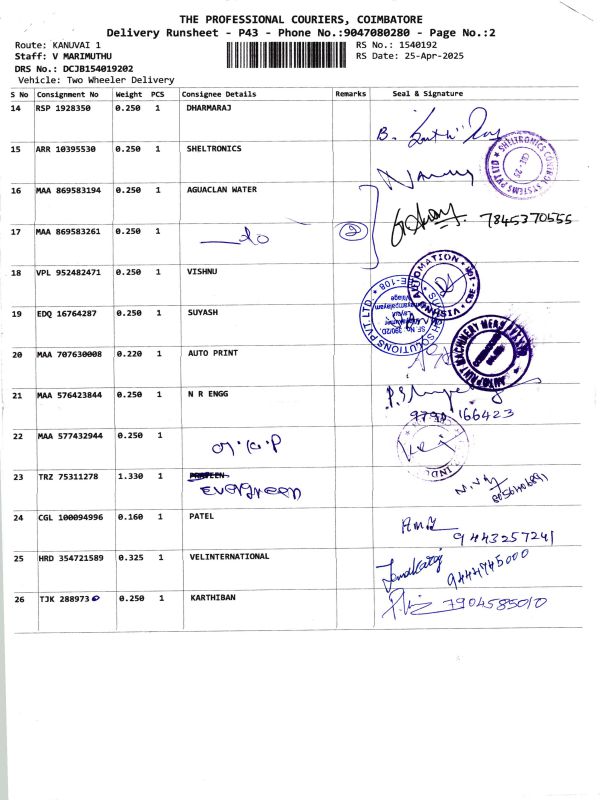 THE PROFESSIONAL COURIERS, COIMBATORE
Delivery Runsheet - P43 - Phone No.:9047080280 - Page No.:2
Route: KANUVAI 1
RS No.: 1540192
Staff: V MARIMUTHU
RS Date: 25-Apr-2025
DRS No.: DCJB154019202
Vehicle: Two Wheeler Delivery
S No Consignment No Weight PCS Consignee Details Remarks Seal & Signature
14 RSP 1928350 0.250 1 DHARMARAJ
15 ARR 10395530 0.250 1 SHELTRONICS
SHELTRONICS CONTROL SYSTEMS PVT LTD
CBE - 25
16 MAA 869583194 0.250 1 AGUACLAN WATER
17 MAA 869583261 0.250 1 do 2 7845370555
18 VPL 952482471 0.250 1 VISHNU
VISHNU AUTOMATION
19 EDQ 16764287 0.250 1 SUYASH
20 MAA 707630008 0.220 1 AUTO PRINT
AUTOPRINT MACHINERY
21 MAA 576423844 0.250 1 N R ENGG
166423
22 MAA 577432944 0.250 1
23 TRZ 75311278 1.330 1 PRAVEEN
Evergreen
24 CGL 100094996 0.160 1 PATEL
9443257241
25 HRD 354721589 0.325 1 VELINTERNATIONAL
9444745000
26 TJK 288973 0.250 1 KARTHIBAN 7904585010